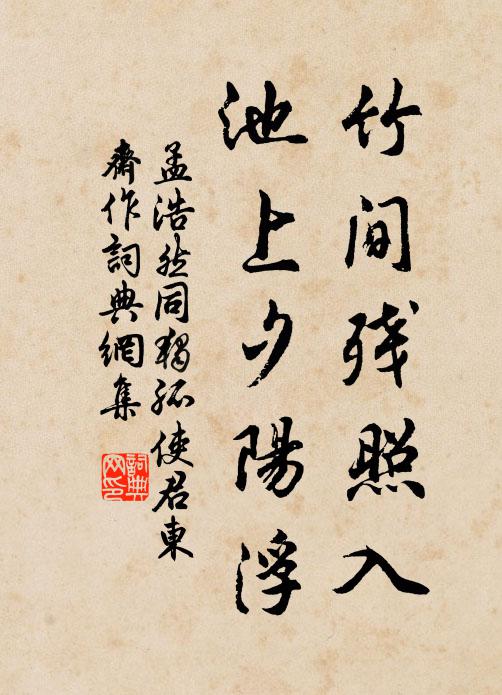 竹间残照入
池上夕陽浮
孟浩然同獨孤使君東
齋作詞典網集
詞典網印